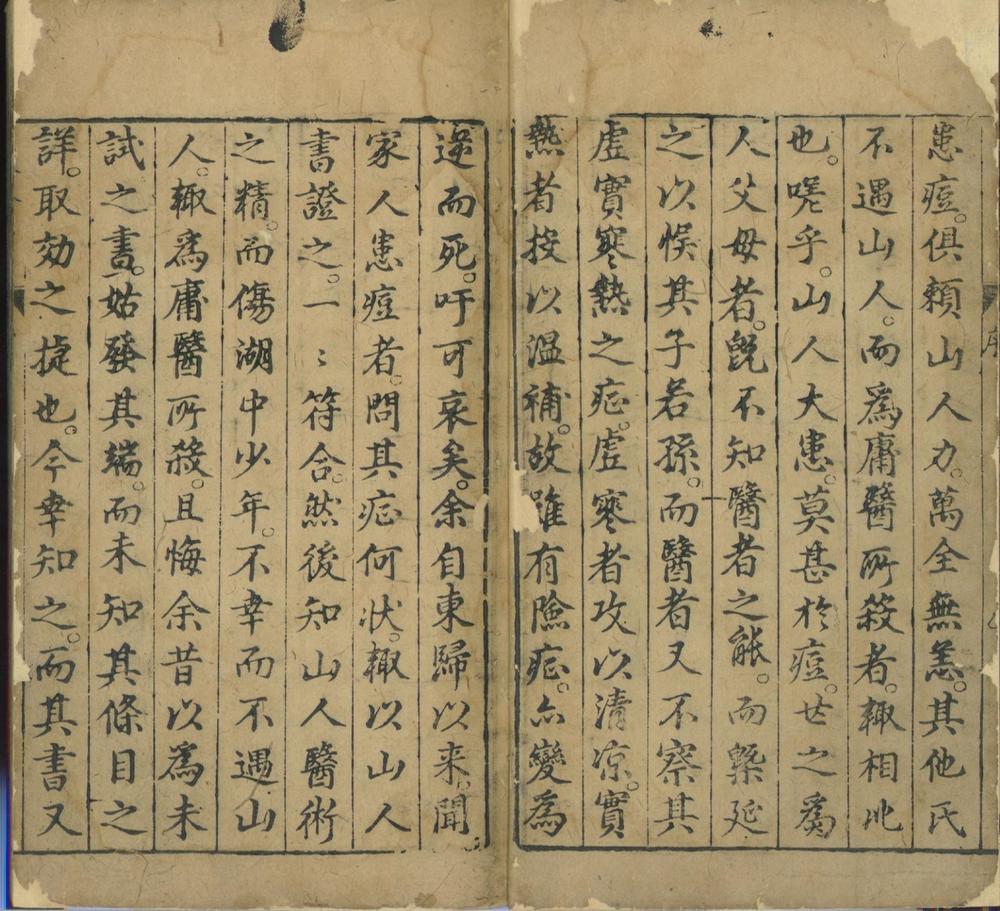 患痘。俱賴山人力。萬全無恙。其他民
不遇山人。而爲庸醫所殺者。輙相比
也。嗟乎。山人大患。莫甚於痘。世之爲
人父母者。旣不知醫者之能。而槩延
之以悞其子若孫。而醫者又不察其
虚實寒熱之症。虚寒者攻以清凉。實
熱者投以温補。故雖有險症。亦變爲
逆而死。吁可哀矣。余自東歸以来。聞
家人患痘者。問其症何状。輙以山人
書證之。一〻符合。然後知山人醫術
之精。而傷湖中少年。不幸而不遇山
人。輙爲庸醫所殺。且悔余昔以爲未
試之書。姑發其端。而未知其條目之
詳。取効之捷也。今幸知之。而其書又
序